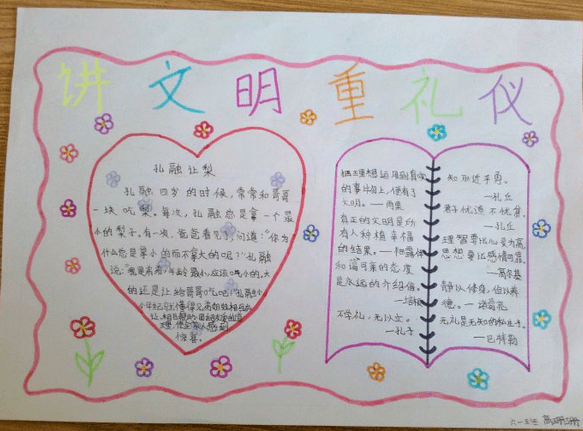 讲文明重礼仪
孔融让梨
孔融四岁的时候，常常和哥哥
一块吃梨。每次，孔融总是拿一个最
小的梨子。有一次，爸爸看见了，问道："你为
什么总是拿小的而不拿大的呢？"孔融
说："我是弟弟，年龄最小，应该吃小的，大
的还是让给哥哥吃吧！"孔融小
惊喜。
把理想运用到真实
的事物上，便有了
文明。——雨果
真正的文明是所
有人种植幸福
的结果。
和谐可亲的态度
是永远的介绍信。
——培根
不学礼，无以立。
——孔子
知耻近乎勇。
——孔丘
君子忧道不忧贫。
——孔丘
理智要比心灵为高
思想要比感情可靠。
——高尔基
静以修身，俭以养
德。——诸葛亮
无礼是无知的私生子。
——巴特勒